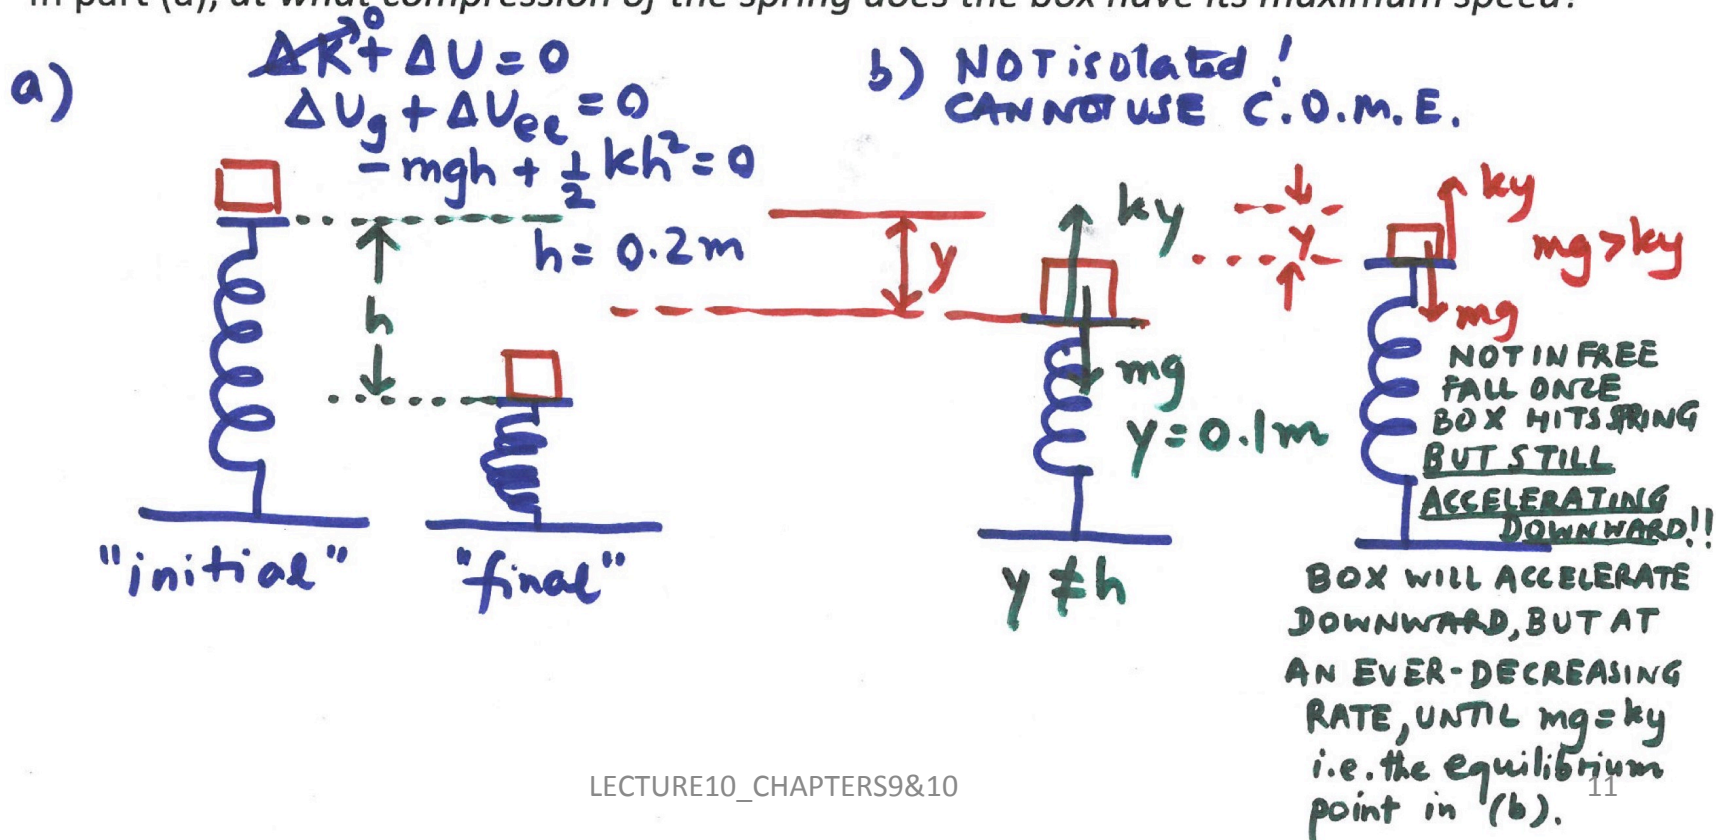 in part (a), at what compression of the spring does the box have its maximum speed?
a)
ΔK⁰ + ΔU = 0
ΔUg + ΔUel = 0
-mgh + ½kh² = 0
h = 0.2m
h
"initial"
"final"
b) NOT isolated!
CANNOT USE C.O.M.E.
y
ky
mg
y = 0.1m
y ≠ h
y
ky
mg > ky
mg
NOT IN FREE
FALL ONCE
BOX HITS SPRING
BUT STILL
ACCELERATING
DOWNWARD!!
BOX WILL ACCELERATE
DOWNWARD, BUT AT
AN EVER-DECREASING
RATE, UNTIL mg = ky
i.e. the equilibrium
point in (b).
LECTURE10_CHAPTERS9&10
11